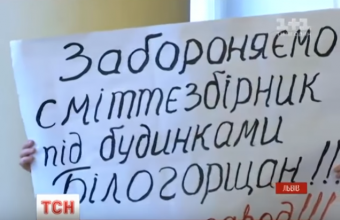 1+1
Забороняємо
сміттєзбірник
під будинками
Білогорщан!!!
ЛЬВІВ
ТСН